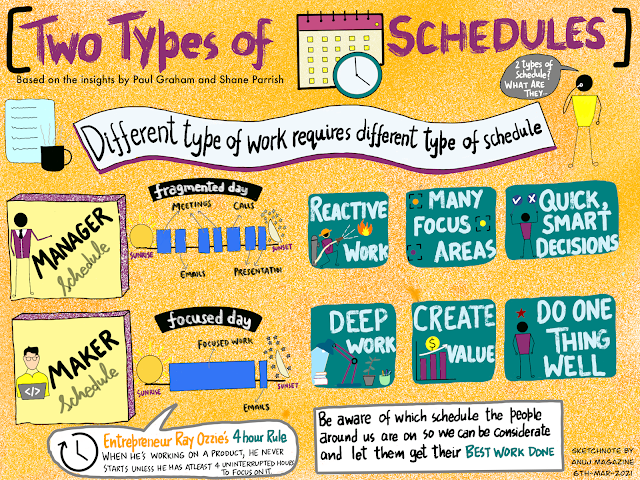 [Two Types of SCHEDULES]
Based on the insights by Paul Graham and Shane Parrish
2 types of
schedule?
WHAT ARE
THEY...
Different type of work requires different type of schedule
MANAGER
Schedule
fragmented day
MEETINGS
CALLS
SUNRISE
SUNSET
EMAILS
PRESENTATION
REACTIVE
WORK
MANY
FOCUS
AREAS
QUICK,
SMART
DECISIONS
MAKER
Schedule
</>
focused day
FOCUSED WORK
SUNRISE
SUNSET
EMAILS
DEEP
WORK
CREATE
$
VALUE
DO ONE
THING
WELL
Entrepreneur Ray Ozzie's 4 hour Rule
WHEN HE'S WORKING ON A PRODUCT, HE NEVER
STARTS UNLESS HE HAS ATLEAST 4 UNINTERRUPTED HOURS
TO FOCUS ON IT.
Be aware of which schedule the people
around us are on so we can be considerate
and let them get their BEST WORK DONE
SKETCHNOTE BY
ANUJ MAGAZINE
6TH-MAR-2021